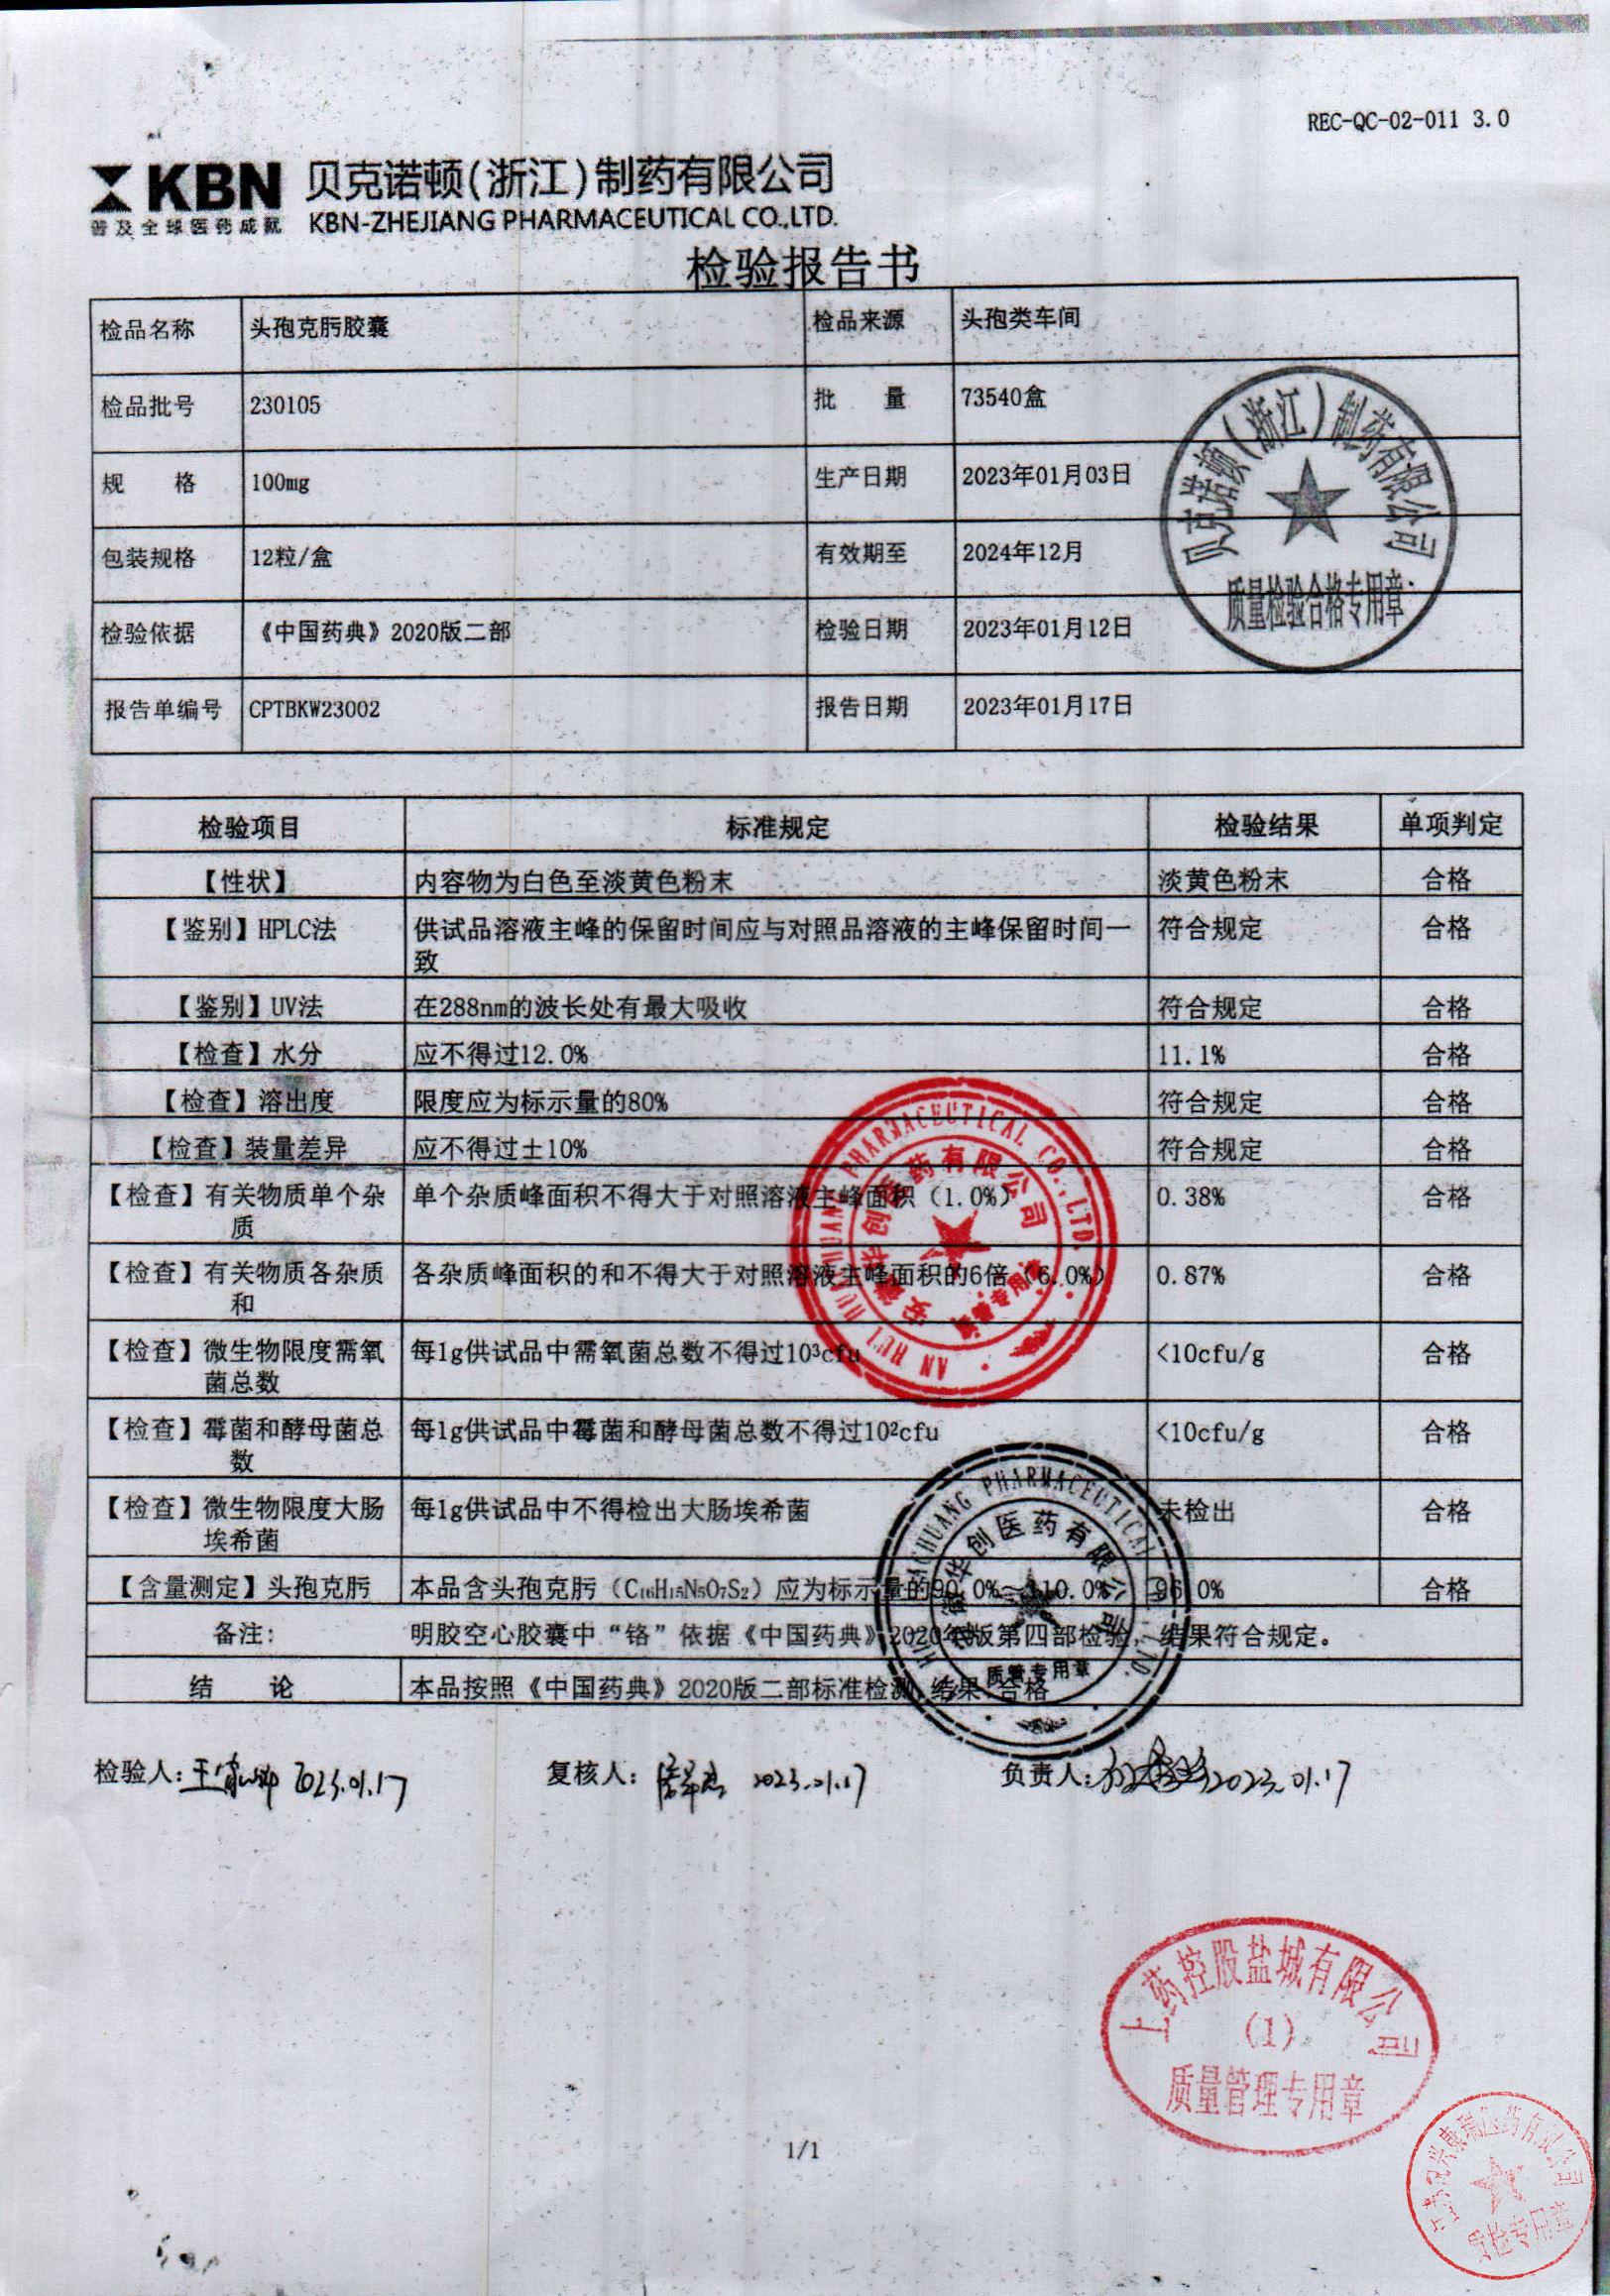 REC-QC-02-011 3.0
KBN 贝克诺顿(浙江)制药有限公司
普及全球医药成就 KBN-ZHEJIANG PHARMACEUTICAL CO.,LTD.
检验报告书
检品名称 头孢克肟胶囊 检品来源 头孢类车间
检品批号 230105 批 量 73540盒
规 格 100mg 生产日期 2023年01月03日
包装规格 12粒/盒 有效期至 2024年12月
检验依据 《中国药典》2020版二部 检验日期 2023年01月12日
报告单编号 CPTBKW23002 报告日期 2023年01月17日
贝克诺顿(浙江)制药有限公司
质量检验合格专用章
检验项目 标准规定 检验结果 单项判定
【性状】 内容物为白色至淡黄色粉末 淡黄色粉末 合格
【鉴别】HPLC法 供试品溶液主峰的保留时间应与对照品溶液的主峰保留时间一 符合规定 合格
致
【鉴别】UV法 在288nm的波长处有最大吸收 符合规定 合格
【检查】水分 应不得过12.0% 11.1% 合格
【检查】溶出度 限度应为标示量的80% 符合规定 合格
【检查】装量差异 应不得过±10% 符合规定 合格
【检查】有关物质单个杂 单个杂质峰面积不得大于对照溶液主峰面积（1.0%） 0.38% 合格
质
【检查】有关物质各杂质 各杂质峰面积的和不得大于对照溶液主峰面积的6倍（6.0%） 0.87% 合格
和
【检查】微生物限度需氧 每1g供试品中需氧菌总数不得过10³cfu <10cfu/g 合格
菌总数
【检查】霉菌和酵母菌总 每1g供试品中霉菌和酵母菌总数不得过10²cfu <10cfu/g 合格
数
【检查】微生物限度大肠 每1g供试品中不得检出大肠埃希菌 未检出 合格
埃希菌
【含量测定】头孢克肟 本品含头孢克肟（C₁₆H₁₅N₅O₇S₂）应为标示量的90.0%~110.0% 96.0% 合格
备注: 明胶空心胶囊中“铬”依据《中国药典》2020年版第四部检验，结果符合规定。
结 论 本品按照《中国药典》2020版二部标准检测,结果:合格
AN HUI HUACHUANG PHARMACEUTICAL CO.,LTD.
安徽华创医药有限公司
质管专用章
HUACHUANG PHARMACEUTICAL CO.,LTD.
安徽华创医药有限公司
质管专用章
检验人: 2023.01.17 复核人: 2023.01.17 负责人: 2023.01.17
上药控股盐城有限公司
(1)
质量管理专用章
1/1
医药有限公司
质检专用章